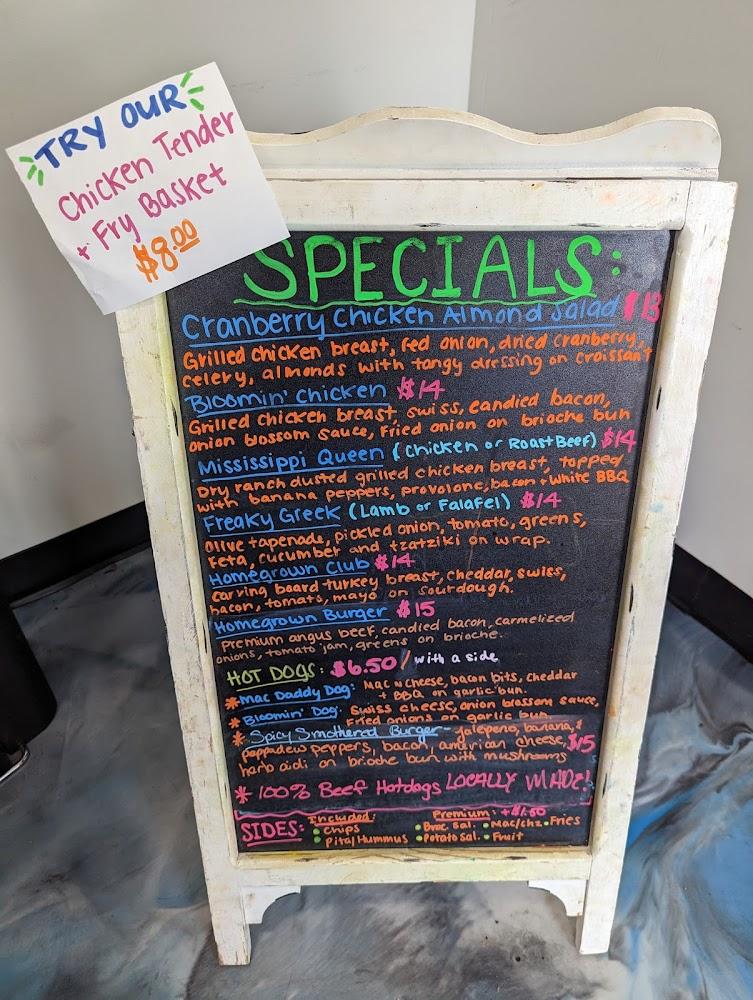 TRY OUR
Chicken Tender
+ Fry Basket
$8.00
SPECIALS:
Cranberry Chicken Almond Salad $13
Grilled chicken breast, red onion, dried cranberry,
celery, almonds with tangy dressing on croissant
Bloomin' Chicken $14
Grilled chicken breast, swiss, candied bacon,
onion blossom sauce, Fried onion on brioche bun
Mississippi Queen (Chicken or Roast Beef) $14
Dry ranch dusted grilled chicken breast, topped
with banana peppers, provolone, bacon + white BBQ
Freaky Greek (Lamb or Falafel) $14
olive tapenade, pickled onion, tomato, greens,
Feta, cucumber and tzatziki on wrap.
Homegrown Club $14
carving board turkey breast, cheddar, swiss,
bacon, tomato, mayo on sourdough.
Homegrown Burger $15
Premium angus beef, candied bacon, carmelized
onions, tomato jam, greens on brioche.
HOT DOGS: $6.50 / with a side
* Mac Daddy Dog: Mac n cheese, bacon bits, cheddar
+ BBQ on garlic bun.
* Bloomin' Dog: Swiss cheese, onion blossom sauce,
Fried onions on garlic bun
* Spicy Smothered Burger - jalepeno, banana, &
peppadew peppers, bacon, american cheese, $15
harb aioli on brioche bun with mushrooms
* 100% Beef Hotdogs LOCALLY MADE!
SIDES: Included: Premium: +$1.50
• Chips • Broc. Sal. • Mac/chz • Fries
• Pita/Hummus • Potato Sal. • Fruit